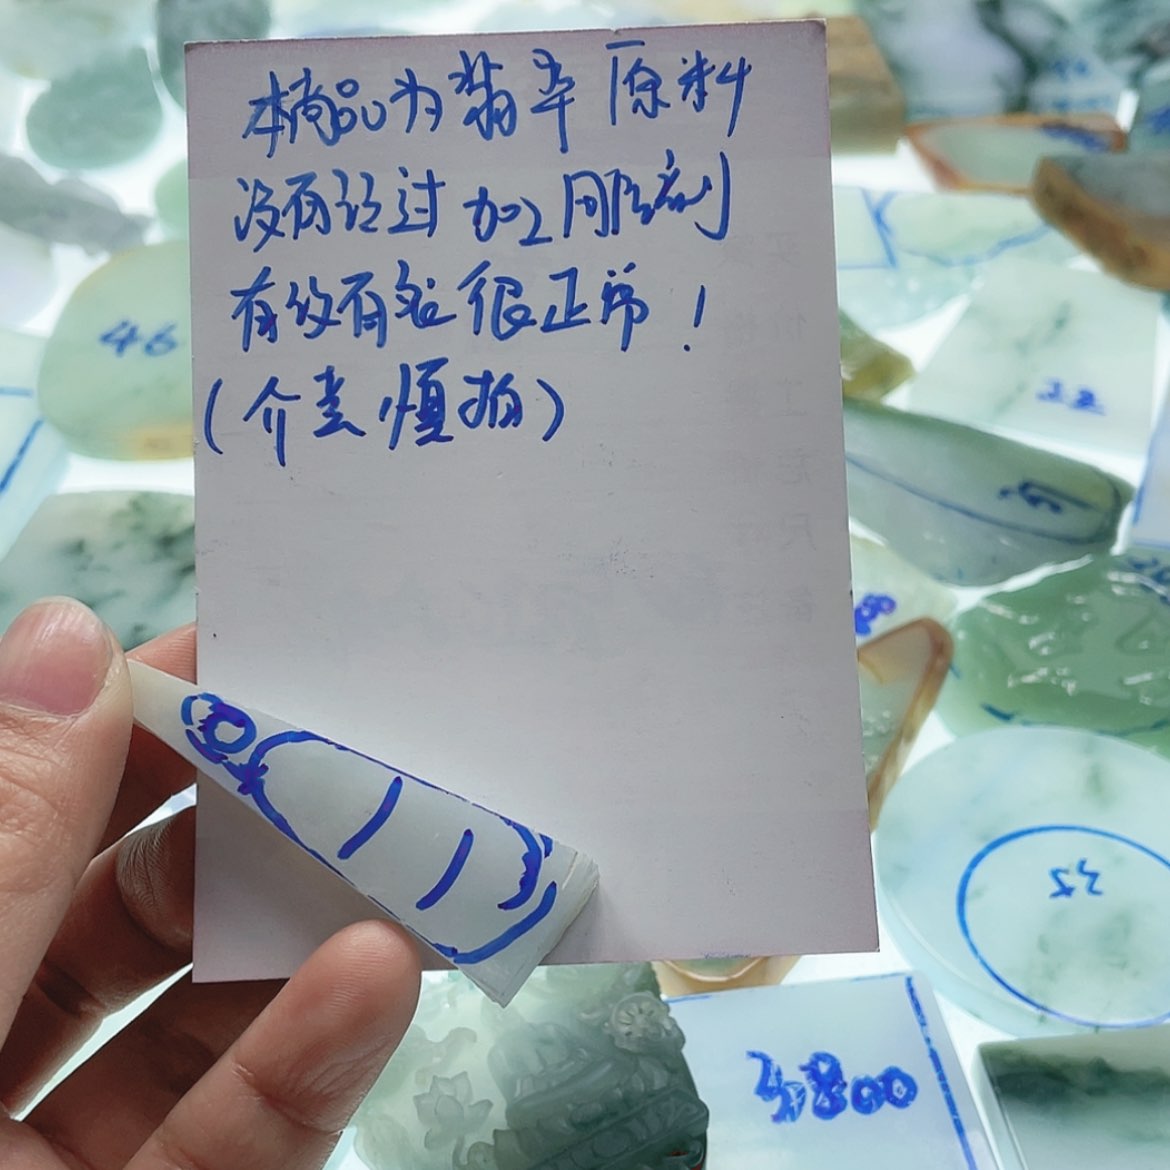 本商品为翡翠原料
没有经过加工雕刻
有纹有裂很正常！
（介意慎拍）
46
22
35
3800